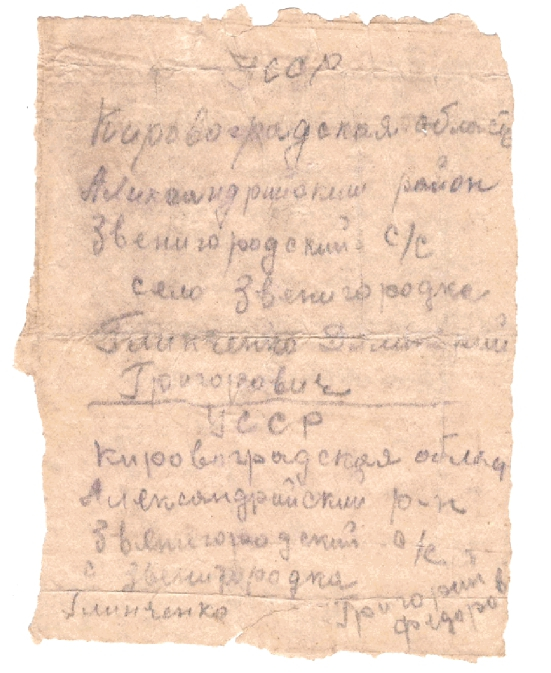 УССР
Кировоградская область
Алихсандрийский район
Звенигородский с/с
село Звенигородка
Глинченко
Григорович
УССР
Кировоградская облас
Александрийский р-н
Звенигородский с/с
с Звенигородка
Глинченко Григорий
Федоров